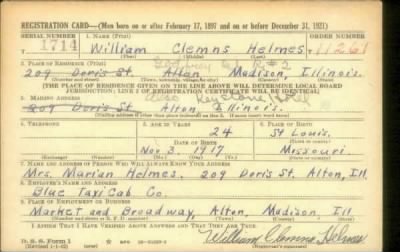 REGISTRATION CARD—(Men born on or after February 17, 1897 and on or before December 31, 1921)
SERIAL NUMBER 1. NAME (Print) ORDER NUMBER
1714 William Clemns Helmes 11261
(First) (Middle) (Last)
Godfrey R#2
2. PLACE OF RESIDENCE (Print)
209 Doris St. Alton Madison, Illinois.
(Number and street) (Town, township, village, or city) (County) (State)
[THE PLACE OF RESIDENCE GIVEN ON THE LINE ABOVE WILL DETERMINE LOCAL BOARD
JURISDICTION; LINE 2 OF REGISTRATION CERTIFICATE WILL BE IDENTICAL]
3. MAILING ADDRESS
209 Doris St. Alton, Illinois.
[Mailing address if other than place indicated on line 2. If same insert word same]
4. TELEPHONE 5. AGE IN YEARS 6. PLACE OF BIRTH
24 St Louis,
DATE OF BIRTH (Town or county)
Nov 3, 1917 Missouri
(Exchange) (Number) (Mo.) (Day) (Yr.) (State or country)
7. NAME AND ADDRESS OF PERSON WHO WILL ALWAYS KNOW YOUR ADDRESS
Mrs. Marian Helmes. 209 Doris St. Alton, Ill.
8. EMPLOYER'S NAME AND ADDRESS
Blue Taxi Cab Co.
9. PLACE OF EMPLOYMENT OR BUSINESS
Market and Broadway, Alton, Madison Ill
(Number and street or R. F. D. number) (Town) (County) (State)
I AFFIRM THAT I HAVE VERIFIED ABOVE ANSWERS AND THAT THEY ARE TRUE.
D. S. S. Form 1
William Clemns Helmes